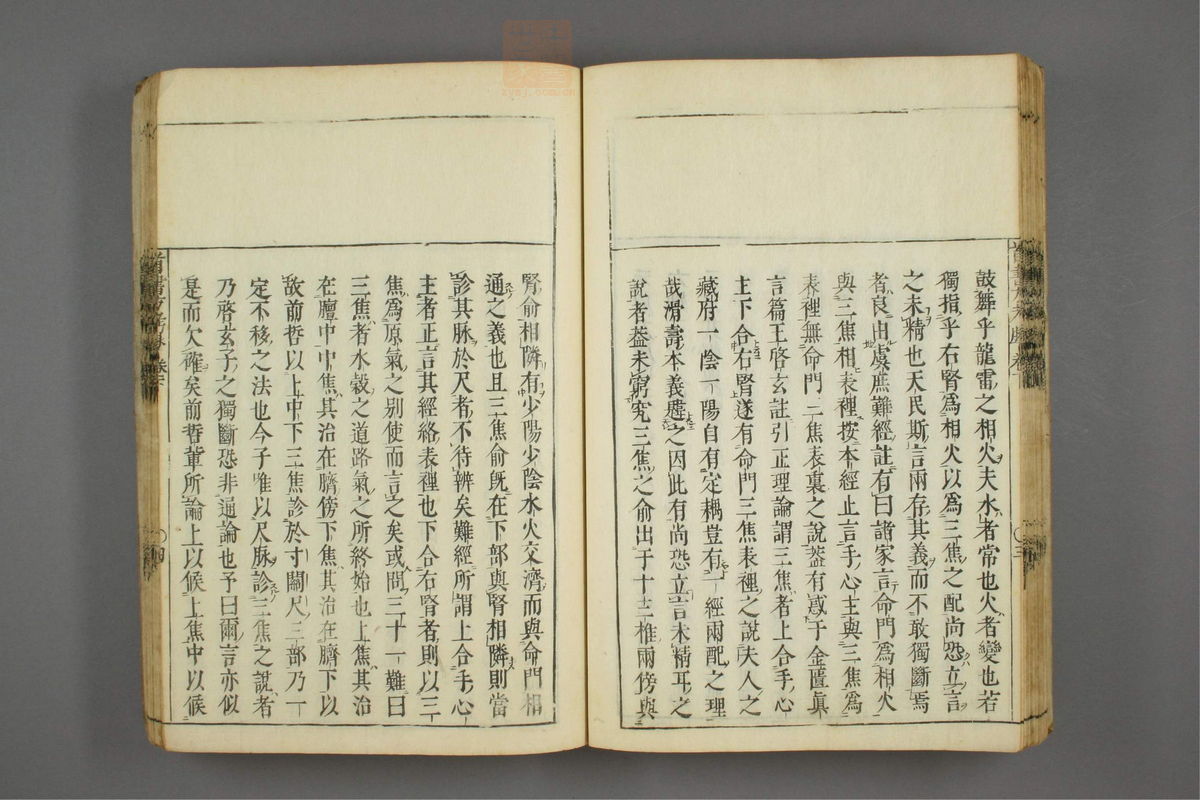 鼓舞乎龍雷之相火夫水者常也火者變也若
獨指乎右腎爲相火以爲三焦之配尚恐立言
之未精也天民斯言兩存其義而不敢獨斷焉
者良由虞庶難經註有曰諸家言命門爲相火
與三焦相表裡按本經止言手心主與三焦爲
表裡無命門三焦表裏之說蓋有惑于金匱眞
言篇王啓玄註引正理論謂三焦者上合手心
主下合右腎遂有命門三焦表裡之說夫人之
藏府一陰一陽自有定耦豈有一經兩配之理
哉滑壽本義遵之因此有尚恐立言未精耳之
說者益未窮究三焦之俞出于十三椎兩傍與
腎俞相隣有少陽少陰水火交濟而與命門相
通之義也且三焦俞旣在下部與腎相隣則當
診其脉於尺者不待辨矣難經所謂上合手心
主者正言其經絡表裡也下合右腎者則以三
焦爲原氣之别使而言之矣或問三十一難曰
三焦者水穀之道路氣之所終始也上焦其治
在膻中中焦其治在臍傍下焦其治在臍下以
故前哲以上中下三焦診於寸關尺三部乃一
定不移之法也今子唯以尺脉診三焦之說者
乃啓玄子之獨斷恐非通論也予曰爾言亦似
是而欠確矣前哲輩所論上以候上焦中以候